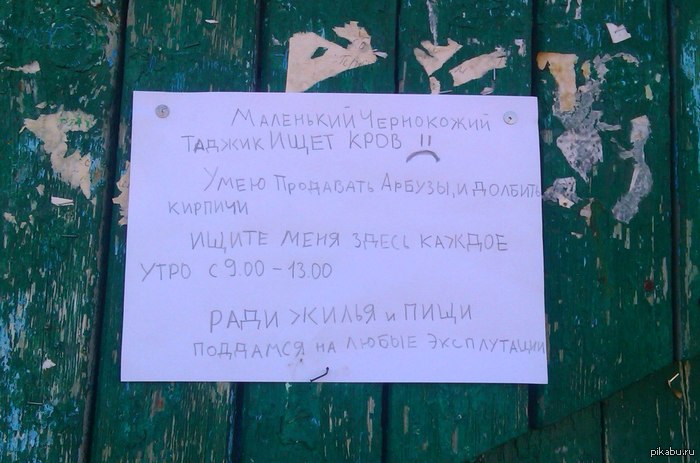 Маленький Чернокожий
Таджик ИЩЕТ КРОВ
Умею Продавать Арбузы, и долбить
кирпичи
ищите меня здесь каждое
утро с 9.00 - 13.00
Ради жилья и пищи
поддамся на любые эксплутации
pikabu.ru